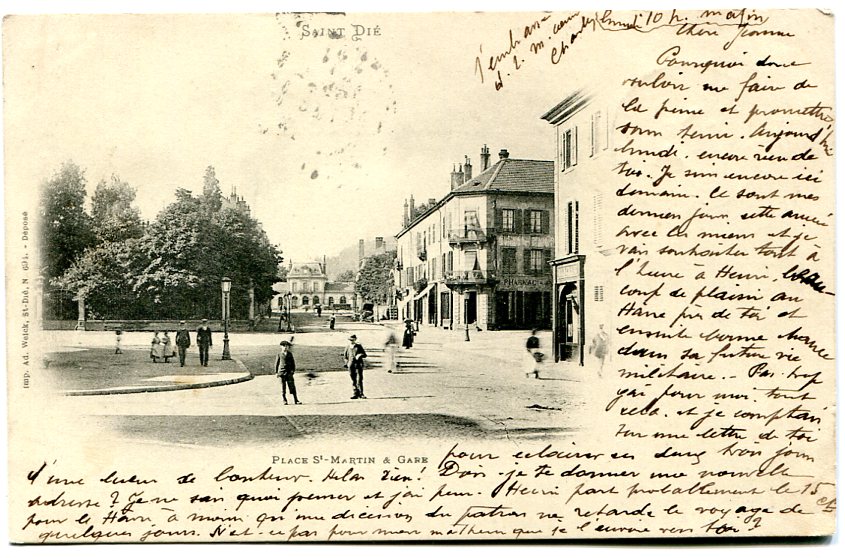 SAINT DIÉ
lundi 10 h. matin
chère Jeanne
Pourquoi donc
vouloir me faire de
la peine et promettre
sans tenir. Aujourd'hui
lundi. encore rien de
toi. Je suis encore ici
demain. Ce sont mes
derniers jours cette année
avec les miens et je
vais souhaiter tantôt à
l'heure à Henri, beau-
coup de plaisir au
Hâvre près de toi et
ensuite bonne chance
dans sa future vie
militaire. - Pas trop
gai pour moi tout
cela. et je comptais
sur une lettre de toi
pour éclairer ces deux bons jours
d'une lueur de bonheur. Hélas rien! Dois-je te donner une nouvelle
adresse? Je ne sais quoi penser et j'ai peur. Henri part probablement le 15 ct
pour le Hâvre à moins qu'une décision du patron ne retarde le voyage de
quelques jours. N'est-ce pas pour mon malheur que je l'envoie vers toi?
J'embrasse
Charles
PHARMAC
PLACE St-MARTIN & GARE
Imp. Ad. Weick, St-Dié, N. - Déposé